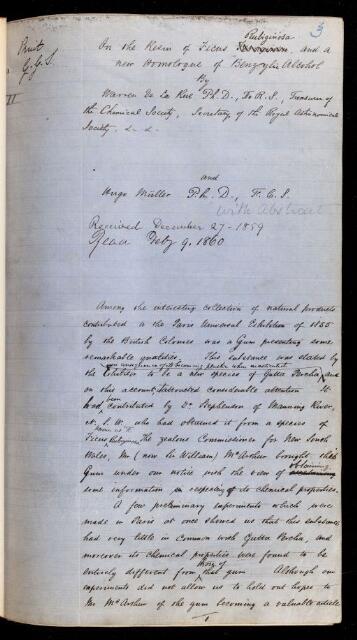 3
Print
G.G.S.
II
On the Resin of Ficus Rubiginosa, and a
new Homologue of Benzylic Alcohol
By
Warren De La Rue Ph.D., F.R.S., Treasurer of
the Chemical Society, Secretary of the Royal Astronomical
Society. &. &.
and
Hugo Müller Ph.D., F.C.S.
with Abstract
Received December 27 - 1859
Read Feby 9. 1860
Among the interesting collection of natural products
contributed to the Paris Universal Exhibition of 1855
by the British Colonies was a Gum presenting some
remarkable qualities. This substance was stated by
the Exhibitor to be a new species of Gutta Percha, and
on this account, attracted considerable attention. It
had been contributed by Dr. Stephenson of Manning River,
N.S.W. who had obtained it from a species of
Ficus known as F. Rubiginosa. The zealous Commissioner for New South
Wales, Mr (now Sir William) McArthur brought this
Gum under our notice with the view of obtaining
some information respecting its chemical properties.
A few preliminary experiments which were
made in Paris at once showed us that this substance
had very little in common with Gutta Percha, and
moreover its chemical properties were found to be
entirely different from those of that gum. Although our
experiments did not allow us to hold out hopes to
Mr McArthur of the gum becoming a valuable article
1